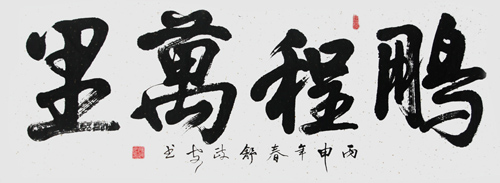 鵬程萬里
丙申年春舒政安书